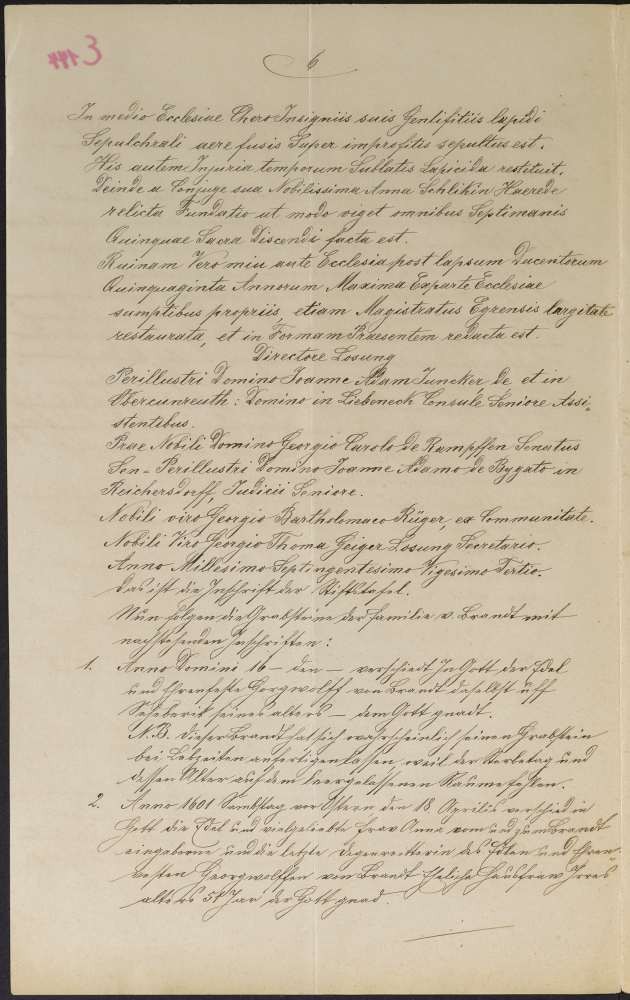 6
In medio Ecclesiae Choro Insigniis suis Gentifitiis lapidi
Sepulchrali aere fusis Super improfitis sepultus est.
His autem Injuria temporum Sublatis Lapicida restituit.
Deinde a Conjuge sua Nobilissima Anna Schlikin Haerede
relicta Fundatio ut modo viget omnibus Septimanis
Quinquae Sacra Discendi facta est.
Ruinam Vero miu ante Ecclesia post lapsum Ducentorum
Quinquaginta Annorum Maxima Exparte Ecclesiae
sumptibus propriis, etiam Magistratus Egrensis largitate
restaurata, et in Formam Praesentem redacta est.
Directore Losung
Perillustri Domino Joanne Adam Juncker de et in
Obercunreuth: Domino in Liebeneck Consule Seniore Assi=
stentibus.
Prae Nobili Domino Georgio Carolo de Rampffen Senatus
Sen- Perillustri Domino Joanne Adamo de Bygato in
Reichersdorff, Judicii Seniore.
Nobili viro Georgio Bartholomaeo Rüger, ex Communitate.
Nobili Viro Georgio Thoma Geiger Losung Secretario.
Anno Millesimo Septingentesimo Vigesimo Tertio.
Das ist die Inschrift der Stiftstafel.
Nun folgen die Grabsteine der Familie v. Brandt mit
nachstehenden Inschriften:
1. Anno Domini 16 — den — verschiedt In Gott der Edel
und Ehrenfeste Gorgwolff von Brandt daselbst uff
seines alters — dem Gott gnadt.
N.B. dieser Brandt hat sich wahrscheinlich seinen Grabstein
bei Lebzeiten anfertigen lassen, weil der Sterbetag und
dessen Alter auf dem leergelassenen Raume fehlen.
2. Anno 1601 Sambstag vor Ostern den 18. Aprilis verschied in
Gott die Edel und vielgeliebte frav Anna vom und zum Brandt
eingeborne und die letzte des Edlen und Ehren=
vesten Georgwolffen von Brandt Eheliche Hausfraw Ires
alters 51 Jar der Gott gnad.